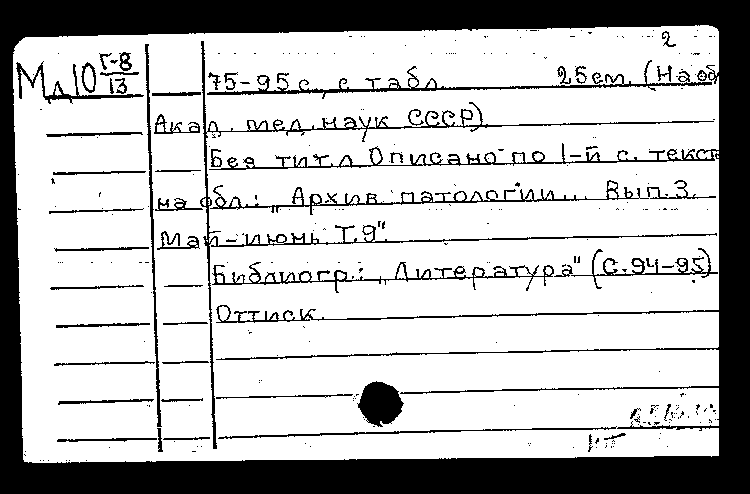 2
Мд10 Г-8/13
75-95 с., с табл. 25 см. (На об
Акад. мед. наук СССР).
Без тит. л. Описано по 1-й с. текст
на обл.: „Архив патологии„. Вып. 3.
Май-июнь. Т. 9".
Библиогр.: „Литература" (С. 94-95).
Оттиск.